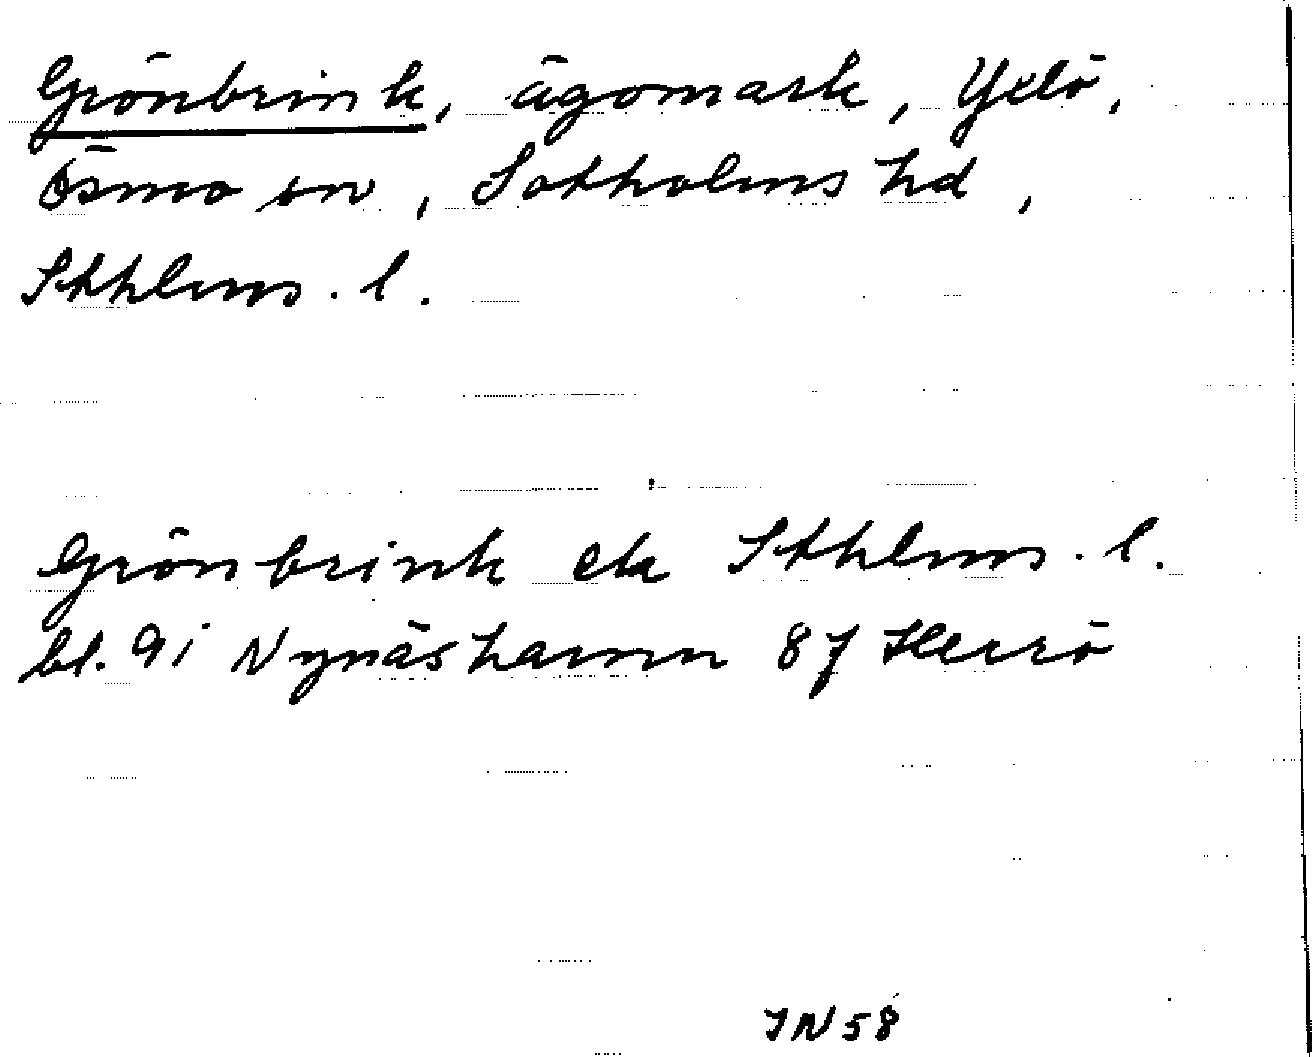 Grönbrink, ägomark, Yxlö,
Ösmo sn, Sotholms hd,
Sthlms. l.
Grönbrink ek Sthlms. l.
bl. 9i Nynäshamn 87 Herrö
JN58